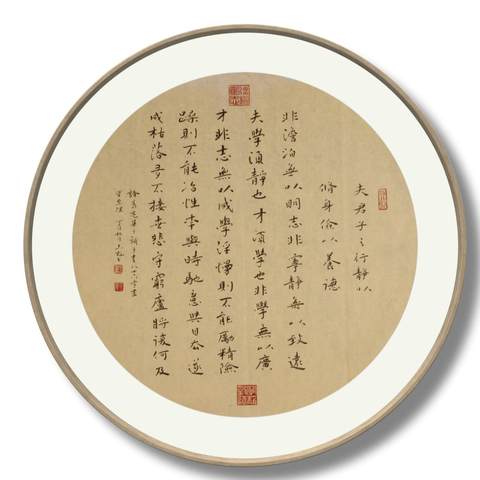 夫君子之行靜以
修身儉以養德
非澹泊無以明志非寧靜無以致遠
夫學須靜也才須學也非學無以廣
才非志無以成學淫慢則不能勵精險
躁則不能冶性年與時馳意與日去遂
成枯落多不接世悲守窮廬將復何及
諸葛亮